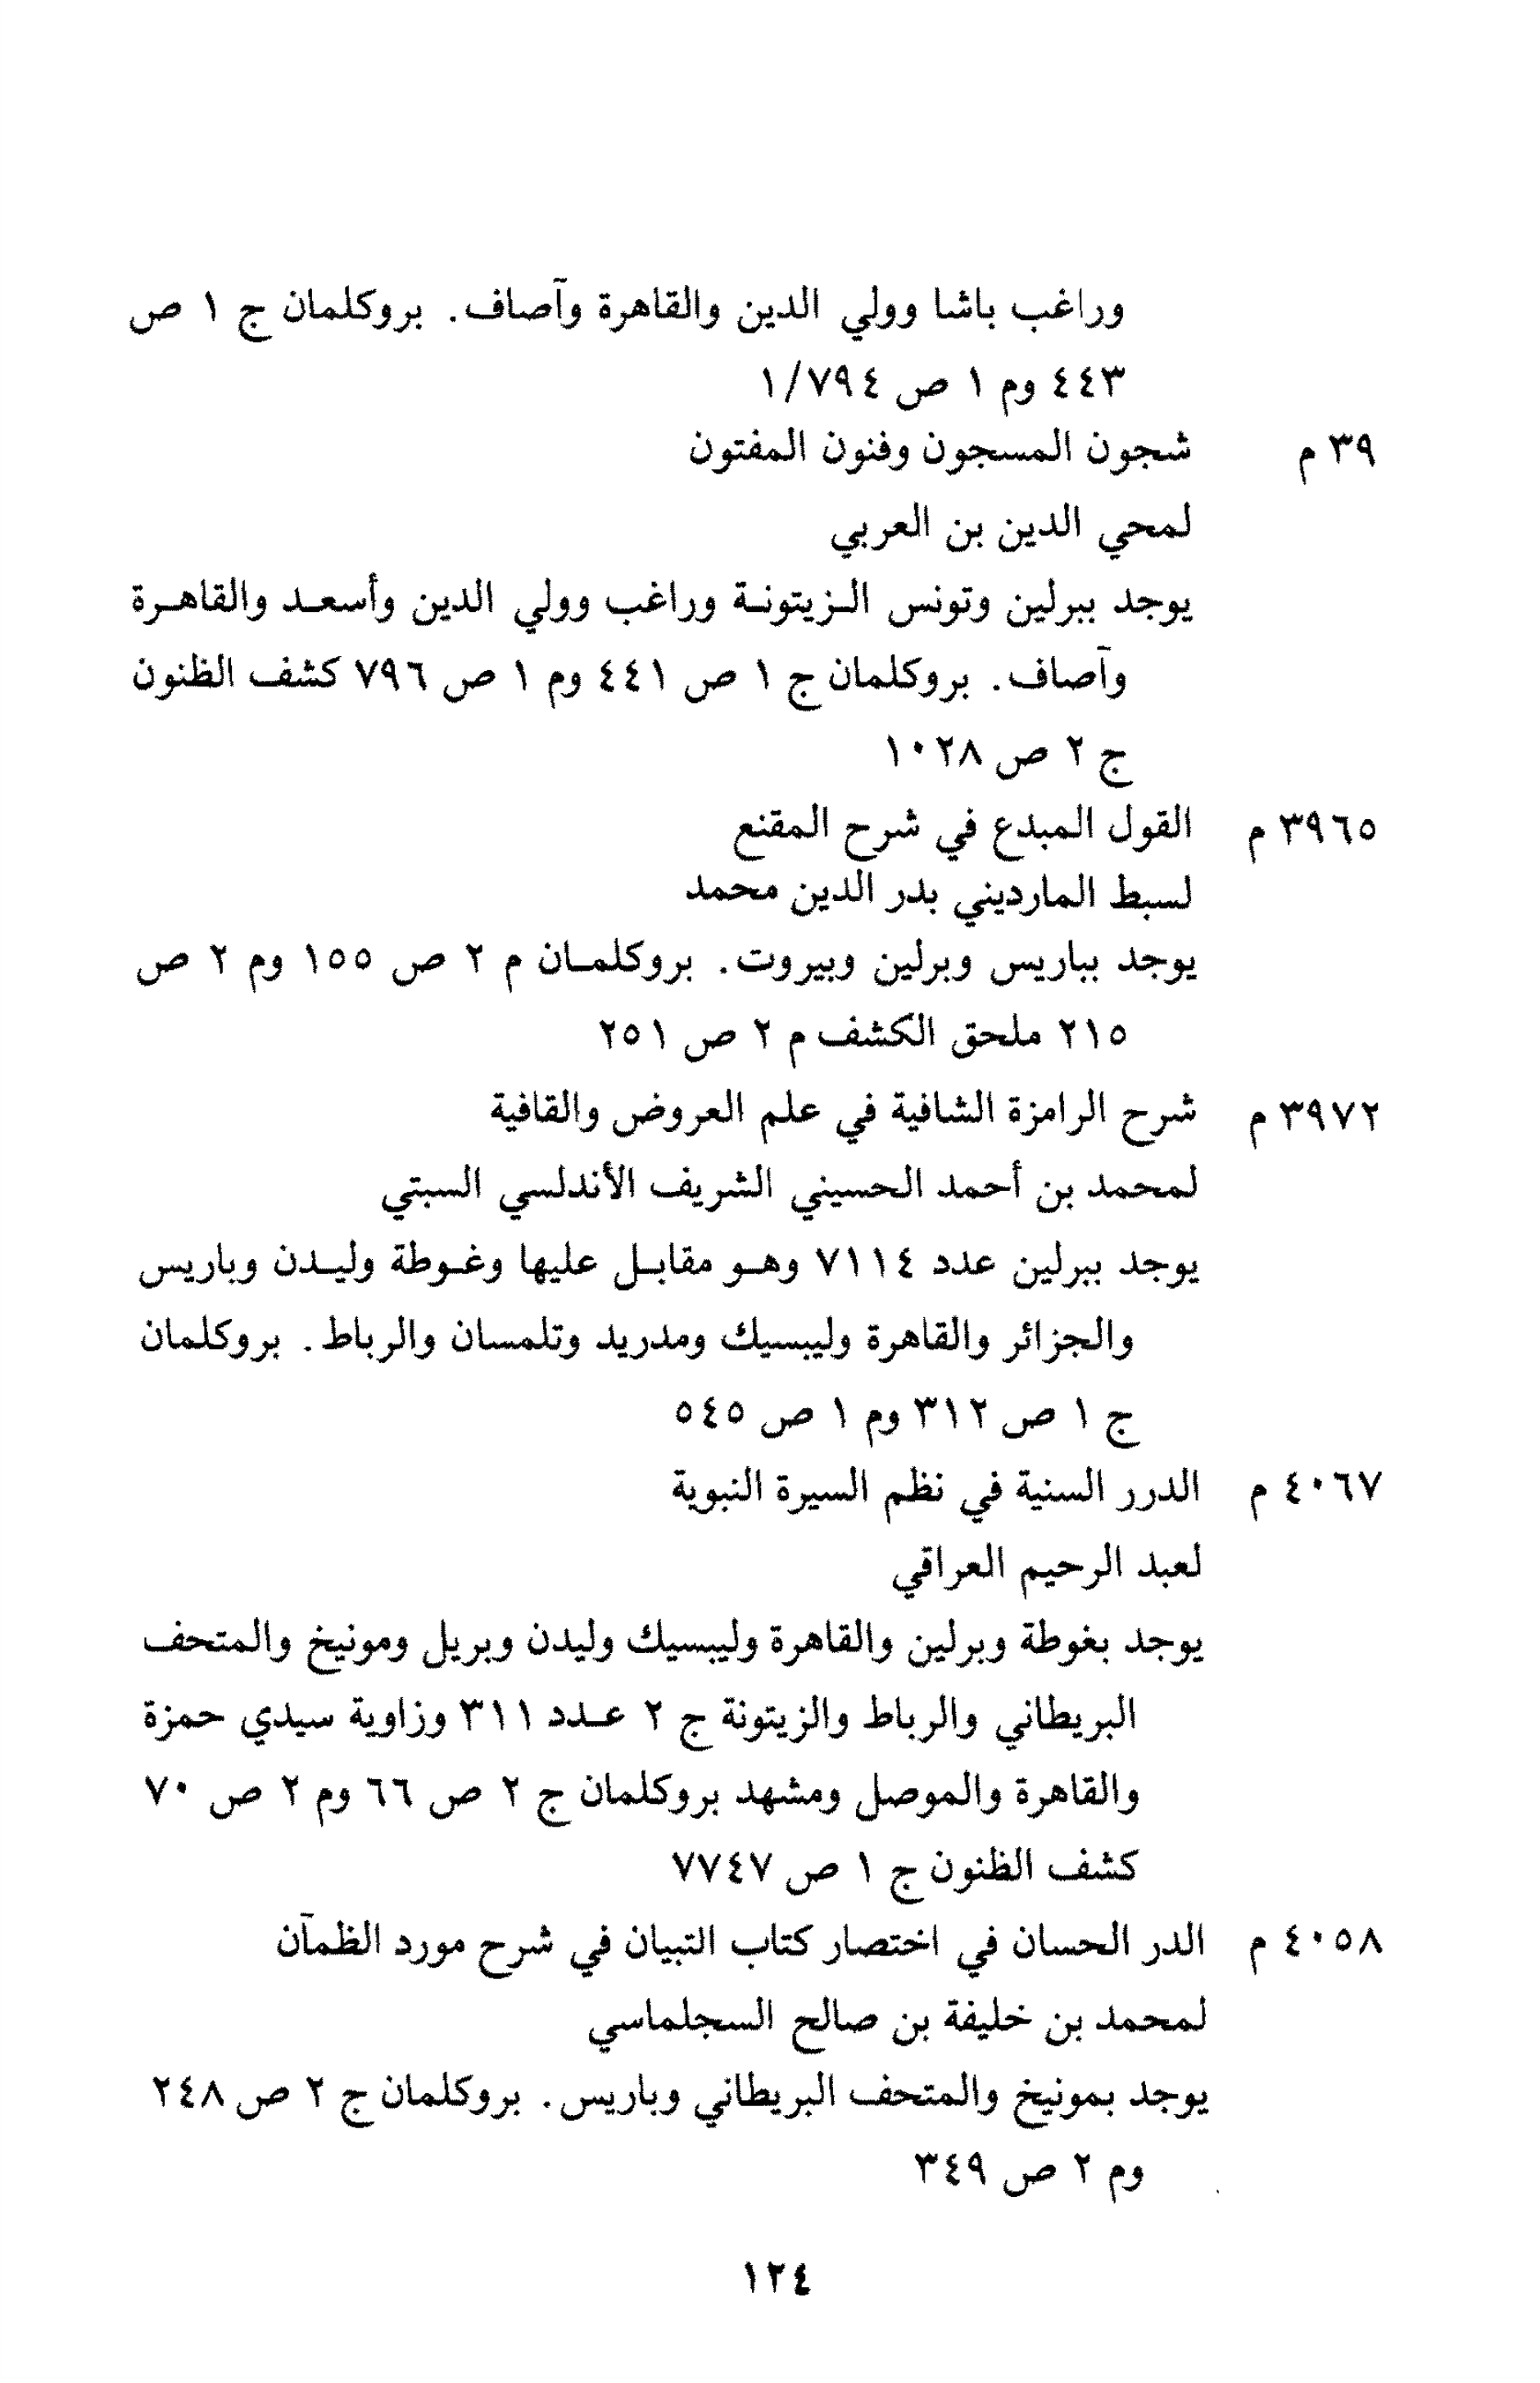 وراغب باشا وولي الدين والقاهرة وآصاف. بروكلمان ج ١ ص
٤٤٣ وم ١ ص ١/٧٩٤
٣٩ م شجون المسجون وفنون المفتون
لمحي الدين بن العربي
يوجد ببرلين وتونس الزيتونة وراغب وولي الدين وأسعد والقاهرة
وآصاف. بروكلمان ج ١ ص ٤٤١ وم ١ ص ٧٩٦ كشف الظنون
ج ٢ ص ١٠٢٨
٣٩٦٥ م القول المبدع في شرح المقنع
لسبط المارديني بدر الدين محمد
يوجد بباريس وبرلين وبيروت. بروكلمان م ٢ ص ١٥٥ وم ٢ ص
٢١٥ ملحق الكشف م ٢ ص ٢٥١
٣٩٧٢ م شرح الرامزة الشافية في علم العروض والقافية
لمحمد بن أحمد الحسيني الشريف الأندلسي السبتي
يوجد ببرلين عدد ٧١١٤ وهو مقابل عليها وغوطة وليدن وباريس
والجزائر والقاهرة وليبسيك ومدريد وتلمسان والرباط. بروكلمان
ج ١ ص ٣١٢ وم ١ ص ٥٤٥
٤٠٦٧ م الدرر السنية في نظم السيرة النبوية
لعبد الرحيم العراقي
يوجد بغوطة وبرلين والقاهرة وليبسيك وليدن وبريل ومونيخ والمتحف
البريطاني والرباط والزيتونة ج ٢ عدد ٣١١ وزاوية سيدي حمزة
والقاهرة والموصل ومشهد بروكلمان ج ٢ ص ٦٦ وم ٢ ص ٧٠
كشف الظنون ج ١ ص ٧٧٤٧
٤٠٥٨ م الدر الحسان في اختصار كتاب التبيان في شرح مورد الظمآن
لمحمد بن خليفة بن صالح السجلماسي
يوجد بمونيخ والمتحف البريطاني وباريس. بروكلمان ج ٢ ص ٢٤٨
وم ٢ ص ٣٤٩
١٢٤